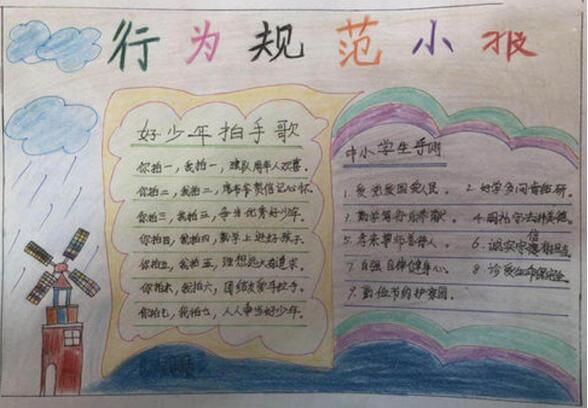 行为规范小报
好少年拍手歌
你拍一，我拍一，建队周年人欢喜。
你拍二，我拍二，席爷爷贺信记心怀。
你拍三，我拍三，争当优秀好少年。
你拍四，我拍四，勤学上进好孩子。
你拍五，我拍五，理想远大有追求。
你拍六，我拍六，团结友爱手拉手。
你拍七，我拍七，人人争当好少年。
中小学生守则
1. 爱党爱国爱人民。 2. 好学多问肯钻研。
3. 勤学笃行乐奉献。 4. 明礼守法讲美德。
5. 孝亲尊师善待人。 6. 诚实守信有担当。
7. 自强自律健身心。 8. 珍爱生命保安全。
9. 勤俭节约护家园。